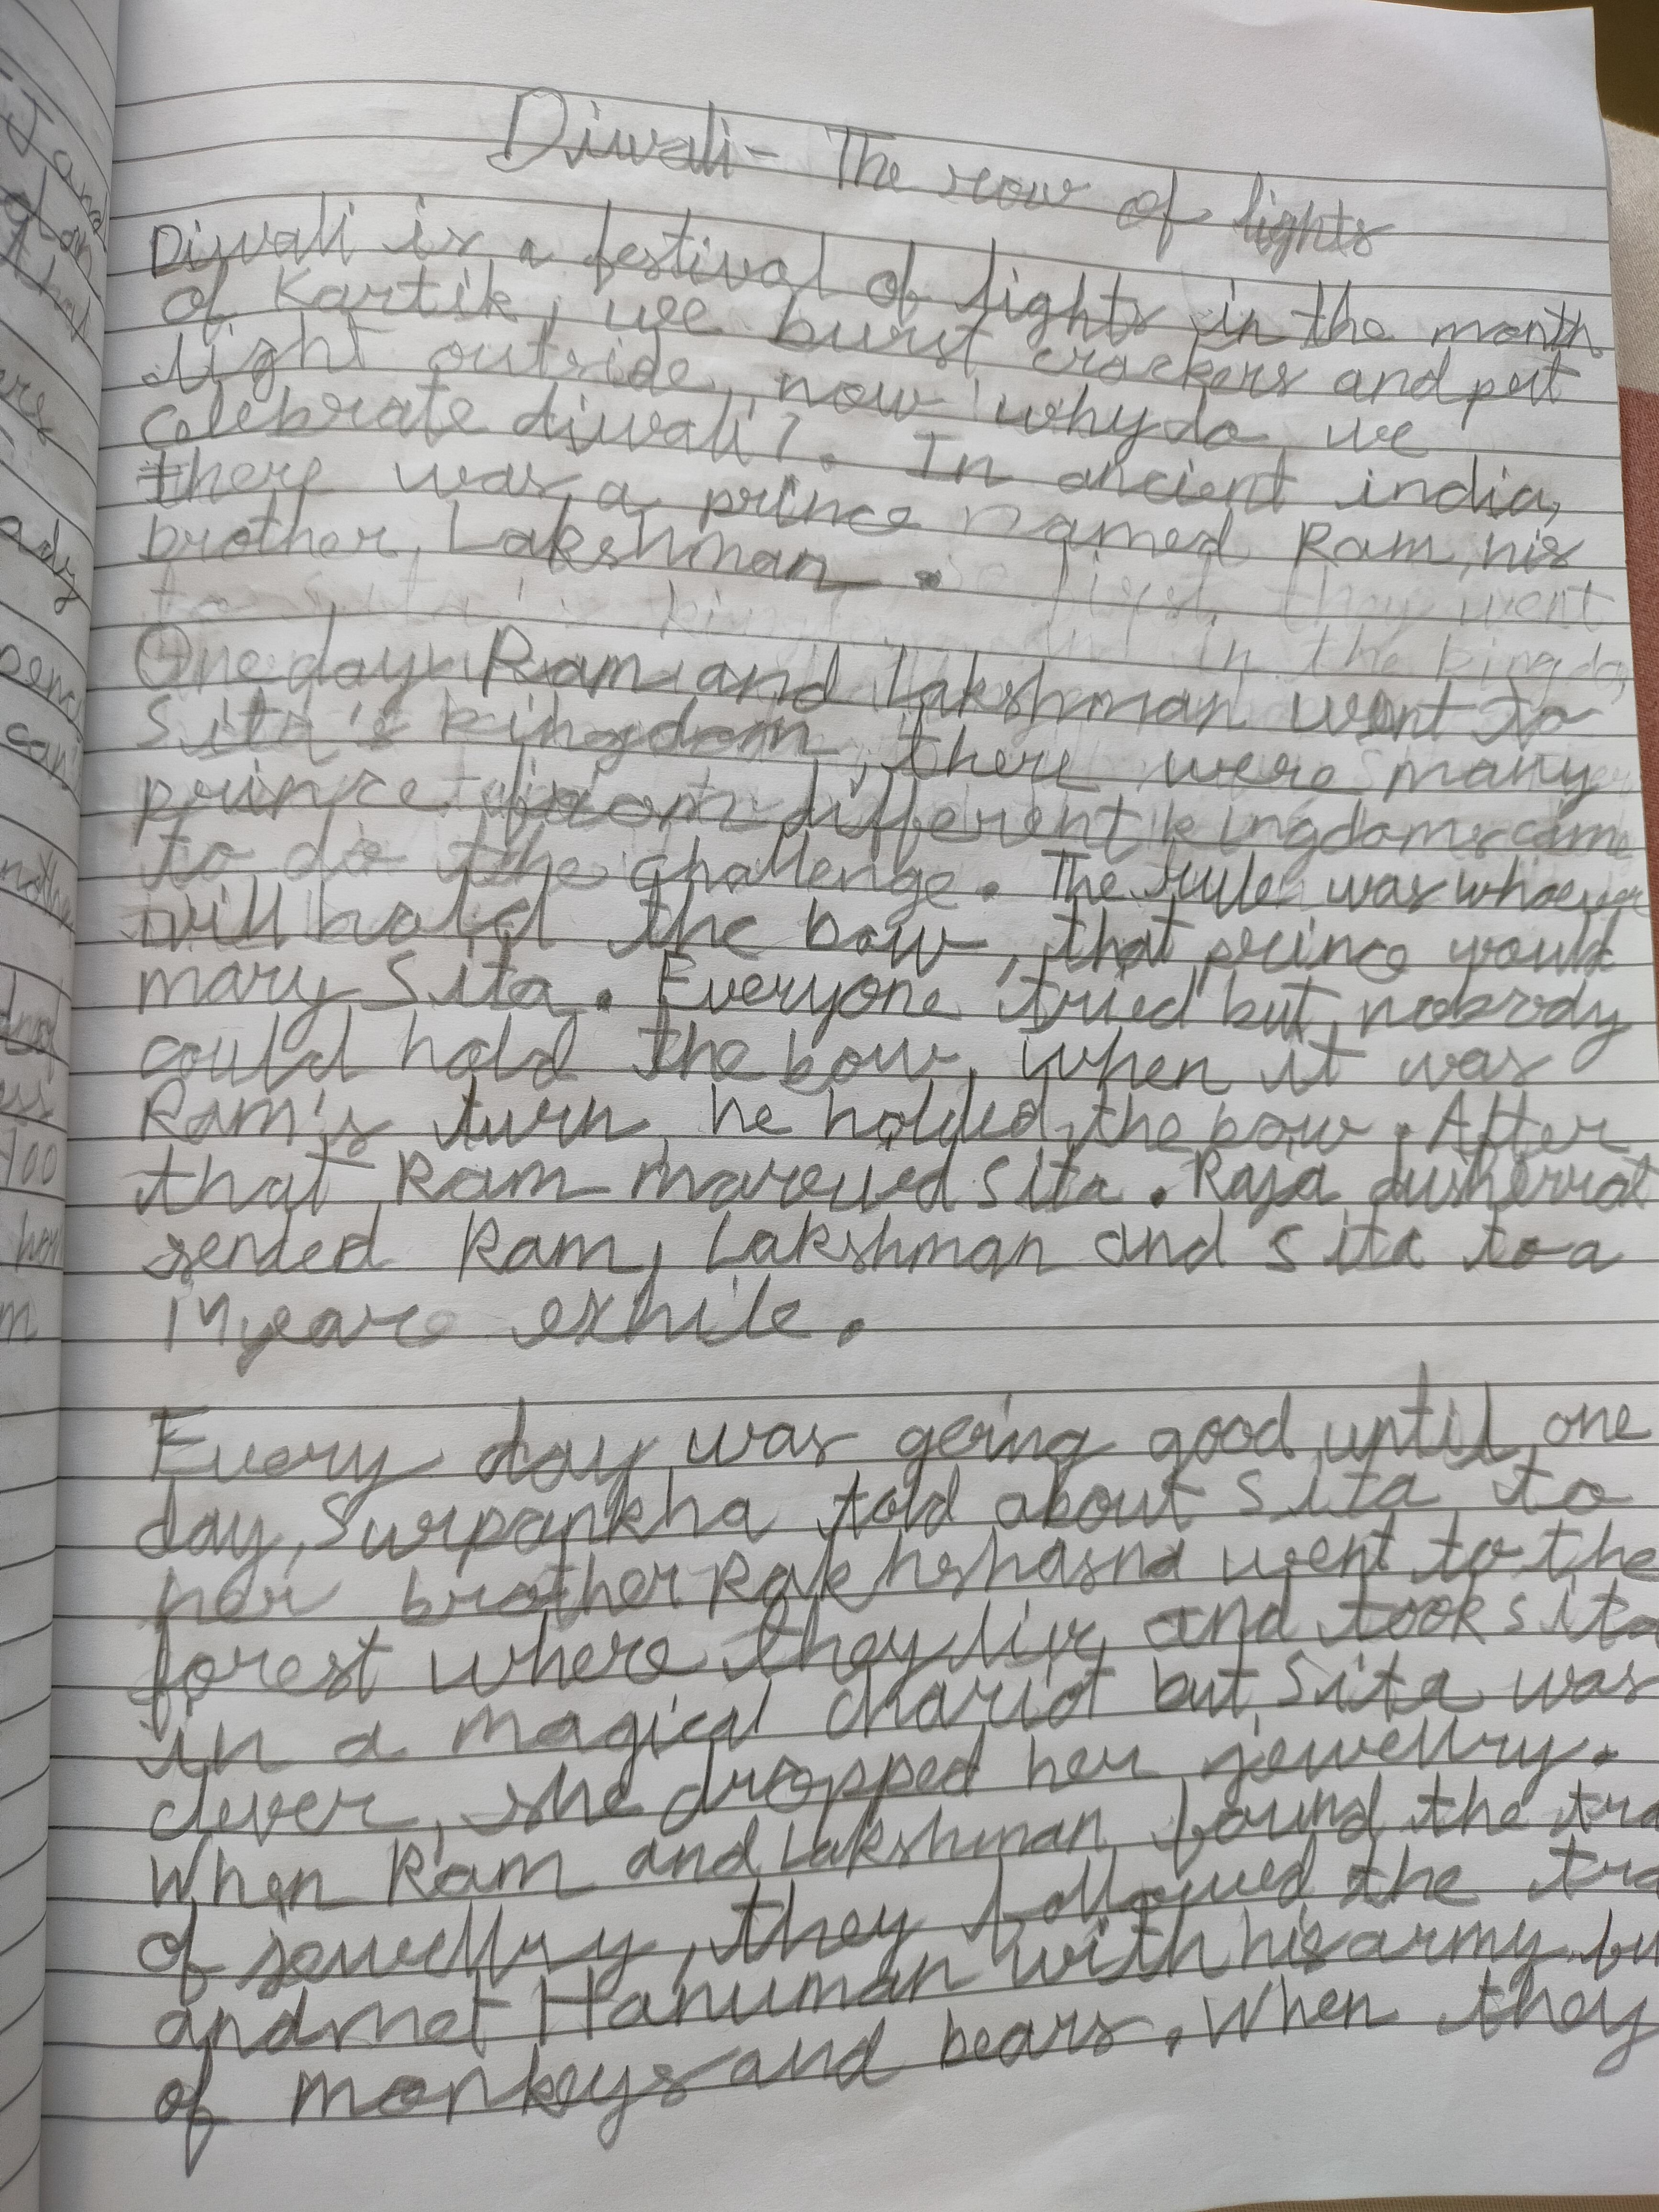 Diwali - The row of lights
Diwali is a festival of lights in the month
of Kartik, we burst crackers and put
light outside, now why do we
celebrate diwali?. In ancient india,
there was a prince named Ram, his
brother, Lakshman.
One day Ram and Lakshman went to
Sita's kingdom, there were many
prince from different kingdoms came
to do the challenge. The rule was whoever
will hold the bow, that prince would
mary Sita. Everyone tried but nobody
could hold the bow, when it was
Ram's turn, he holded the bow. After
that Ram Sita. Raja
sended Ram, Lakshman and Sita to a
14 year exhile.
Every day was going good until one
day, Surpankha told about Sita to
her brother went to the
forest where they live and took Sita
in a magical chariot but Sita was
clever, she dropped her jewellry.
When Ram and Lakshman found the tra
of jewellry, they followed the tra
and met Hanuman with his army bu
of monkeys and bears. When they